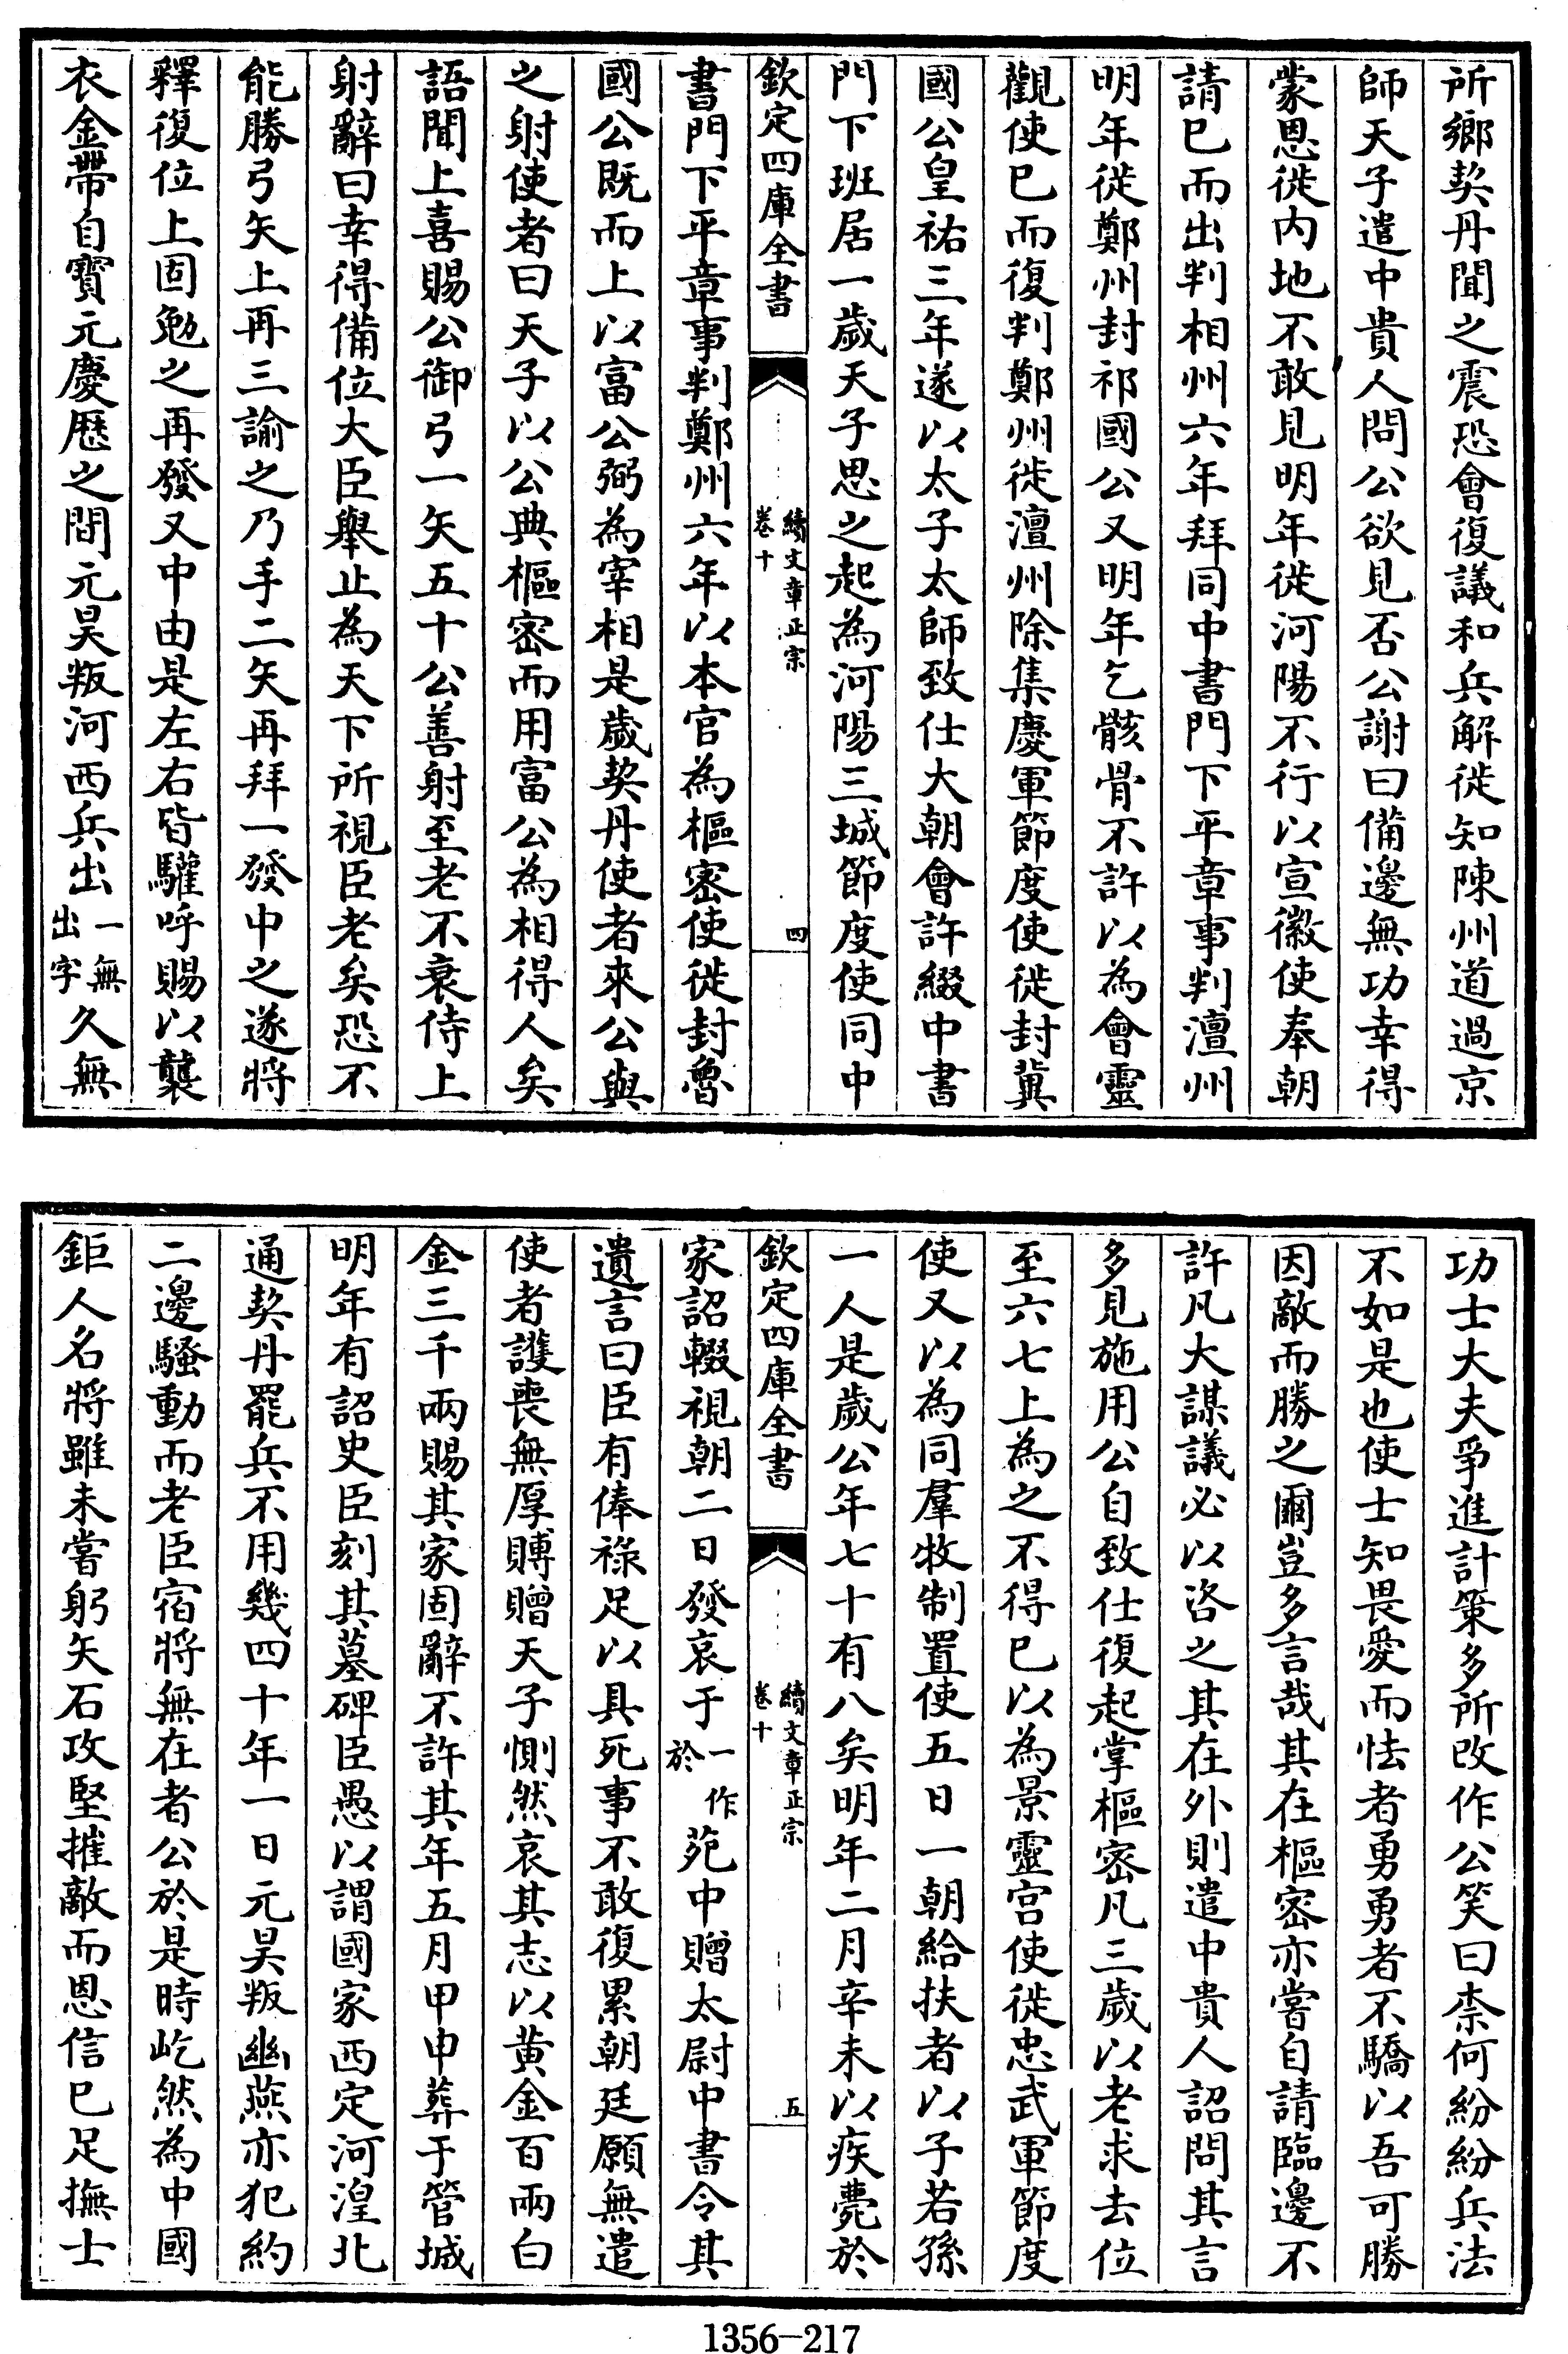 所鄉契丹聞之震恐會復議和兵解徙知陳州道過京
師天子遣中貴人問公欲見否公謝曰備邊無功幸得
蒙恩徙内地不敢見明年徙河陽不行以宣徽使奉朝
請已而出判相州六年拜同中書門下平章事判澶州
明年徙鄭州封祁國公又明年乞骸骨不許以為會靈
觀使已而復判鄭州徙澶州除集慶軍節度使徙封冀
國公皇祐三年遂以太子太師致仕大朝會許綴中書
門下班居一歲天子思之起為河陽三城節度使同中
欽定四庫全書
續文章正宗
卷十
四
書門下平章事判鄭州六年以本官為樞密使徙封魯
國公既而上以富公弼為宰相是歲契丹使者來公與
之射使者曰天子以公典樞密而用富公為相得人矣
語聞上喜賜公御弓一矢五十公善射至老不衰侍上
射辭曰幸得備位大臣舉止為天下所視臣老矣恐不
能勝弓矢上再三諭之乃手二矢再拜一發中之遂將
釋復位上固勉之再發又中由是左右皆驩呼賜以襲
衣金帶自寶元慶歷之間元昊叛河西兵出一無出字久無
功士大夫爭進計策多所改作公笑曰柰何紛紛兵法
不如是也使士知畏愛而怯者勇勇者不驕以吾可勝
因敵而勝之爾豈多言哉其在樞密亦嘗自請臨邊不
許凡大謀議必以咨之其在外則遣中貴人詔問其言
多見施用公自致仕復起掌樞密凡三歲以老求去位
至六七上為之不得已以為景靈宫使徙忠武軍節度
使又以為同羣牧制置使五日一朝給扶者以子若孫
一人是歲公年七十有八矣明年二月辛未以疾薨於
欽定四庫全書
續文章正宗
卷十
五
家詔輟視朝二日發哀于一作於苑中贈太尉中書令其
遺言曰臣有俸祿足以具死事不敢復累朝廷願無遣
使者護喪無厚賻贈天子惻然哀其志以黄金百兩白
金三千兩賜其家固辭不許其年五月甲申葬于管城
明年有詔史臣刻其墓碑臣愚以謂國家西定河湟北
通契丹罷兵不用幾四十年一日元昊叛幽燕亦犯約
二邊騷動而老臣宿將無在者公於是時屹然為中國
鉅人名將雖未嘗躬矢石攻堅摧敵而恩信已足撫士
1356-217